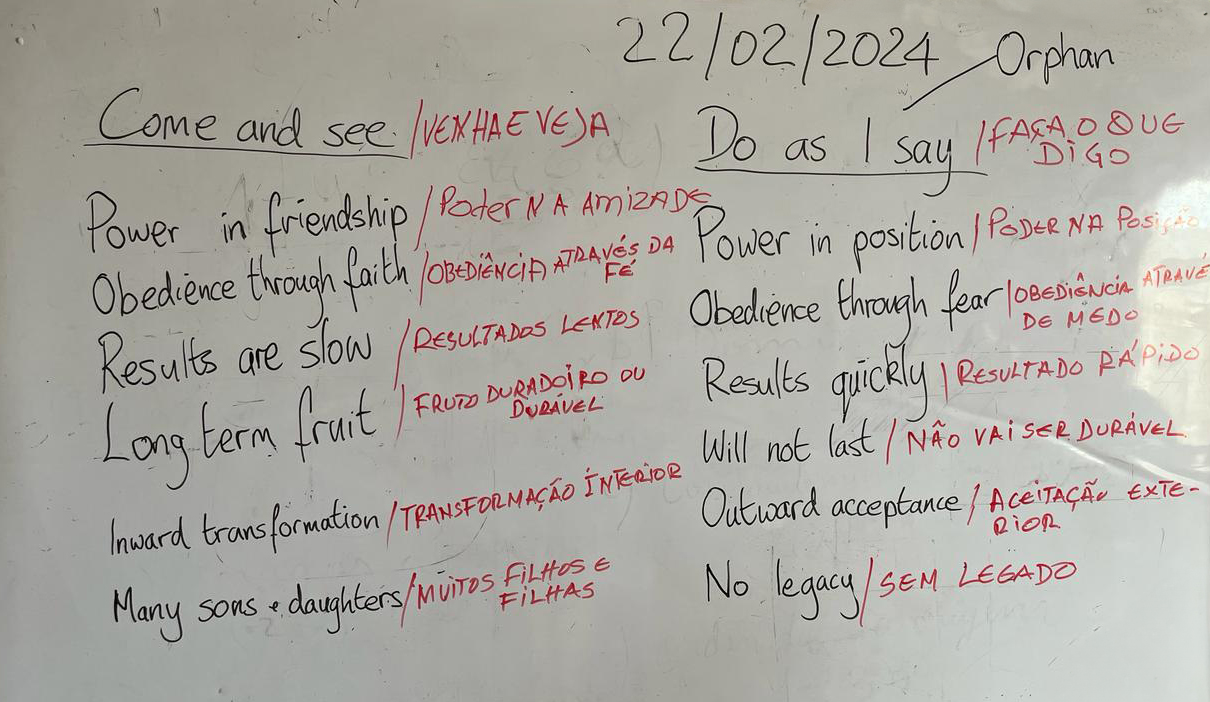 22/02/2024 Orphan
Come and see /VENHA E VEJA
Power in friendship / Poder NA AMIZADE
Obedience through faith /OBEDIÊNCIA ATRAVÉS DA
FÉ
Results are slow / RESULTADOS LENTOS
Long term fruit / FRUTO DURADOÍRO OU
DURÁVEL
Inward transformation / TRANSFORMAÇÃO ÍNTERIOR
Many sons e daughters / MUITOS FILHOS E
FILHAS
Do as I say / FAÇA O QUE
DIGO
Power in position / PODER NA POSIÇÃO
Obedience through fear | OBEDIÊNCIA ATRAVÉ
DE MEDO
Results quickly | RESULTADO RÁPIDO
Will not last / NÃO VAI SER DURÁVEL
Outward acceptance / ACEITAÇÃO EXTE-
RIOR
No legacy / SEM LEGADO